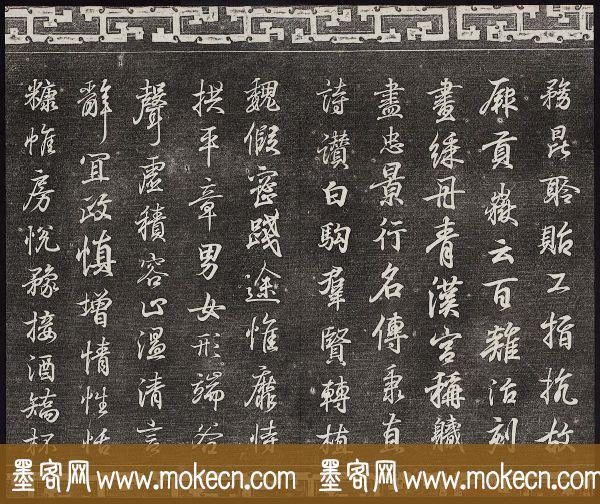 務昆聆貽工指抗故
厥貢云百雞治刻
畫綵丹青漢宮稱職
盡忠景行名傳秉直
詩讚白駒羣賢轉植
魏假密踐途惟靡恃
拱平章男女形端谷
聲虛積容止溫清言
辭宜政慎增情性恬
糠帷房悅豫接酒矯杯
墨客网 www.mokecn.com 墨客网 www.mokecn.com